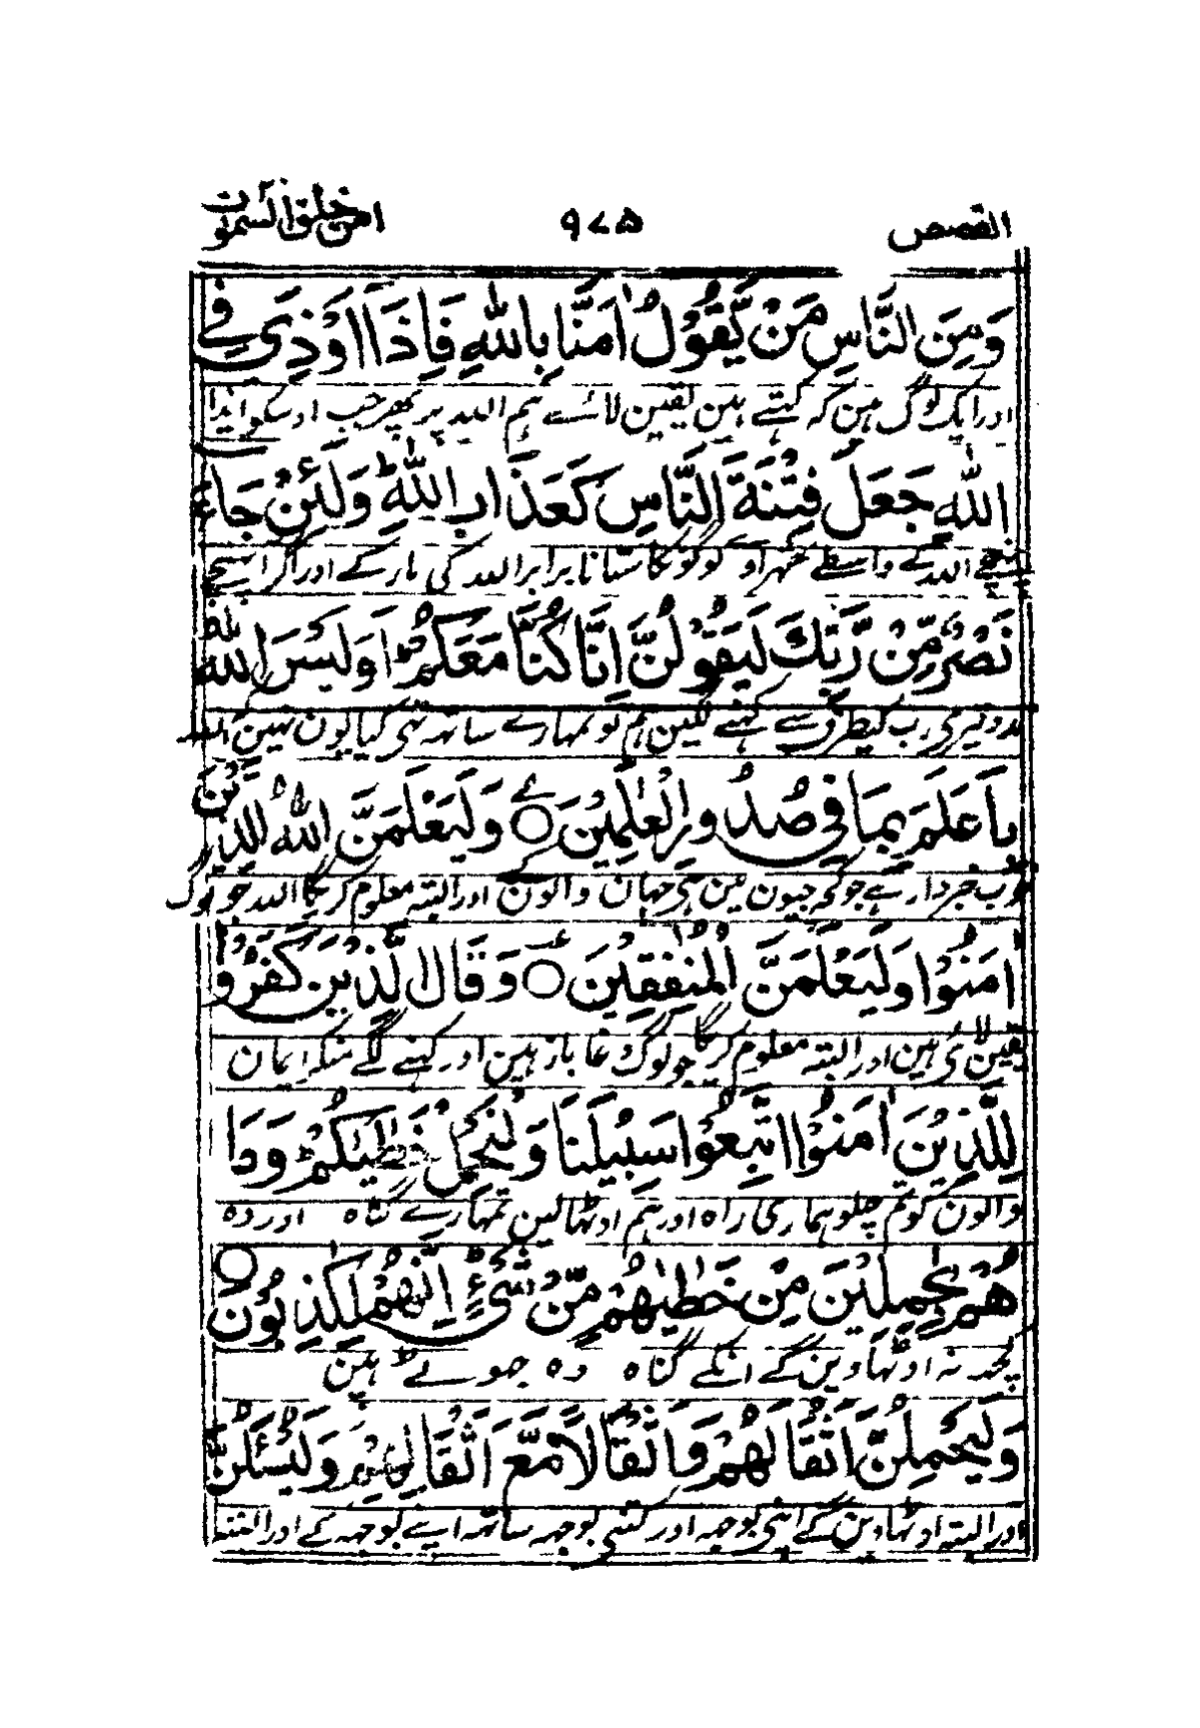 القصص ۹۷۵ امن خلق السمٰوٰت
وَمِنَ النَّاسِ مَنْ يَّقُوْلُ اٰمَنَّا بِاللّٰهِ فَاِذَآ اُوْذِیَ فِی
اور ایک لوگ ہین کہ کہتے ہین یقین لائے ہم اللہ پر پھر جب اوسکو ایذا
اللّٰهِ جَعَلَ فِتْنَةَ النَّاسِ كَعَذَابِ اللّٰهِ ؕ وَلَئِنْ جَآءَ
پہنچے اللہ کے واسطے ٹھہراوے لوگونکا ستانا برابر اللہ کی مار کے اور اگر آ پہنچے
نَصْرٌ مِّنْ رَّبِّكَ لَيَقُوْلُنَّ اِنَّا كُنَّا مَعَكُمْ ؕ اَوَلَيْسَ اللّٰهُ
مدد تیری رب کیطرف سے کہنے لگین ہم تو تمہارے ساتھ تھی کیا یون نہین اللہ
بِاَعْلَمَ بِمَا فِیْ صُدُوْرِ الْعٰلَمِيْنَ ○ وَلَيَعْلَمَنَّ اللّٰهُ الَّذِيْنَ
خوب خبردار ہے جو کچھ جیون مین ہی جہان والون کے اور البتہ معلوم کریگا اللہ جو لوگ
اٰمَنُوْا وَلَيَعْلَمَنَّ الْمُنٰفِقِيْنَ ○ وَقَالَ الَّذِيْنَ كَفَرُوْا
یقین لائی ہین اور البتہ معلوم کریگا جو لوگ دغا باز ہین اور کہنے لگے منکر ایمان
لِلَّذِيْنَ اٰمَنُوا اتَّبِعُوْا سَبِيْلَنَا وَلْنَحْمِلْ خَطٰيٰكُمْ ؕ وَمَا
والون کو تم چلو ہماری راہ اور ہم اوٹھا لین تمہارے گناہ اور وہ
هُمْ بِحٰمِلِيْنَ مِنْ خَطٰيٰهُمْ مِّنْ شَیْءٍ ؕ اِنَّهُمْ لَكٰذِبُوْنَ ○
کچھ نہ اوٹھاوین گے انکے گناہ وہ جھوٹے ہین
وَلَيَحْمِلُنَّ اَثْقَالَهُمْ وَاَثْقَالًا مَّعَ اَثْقَالِهِمْ وَلَيُسْـَٔلُنَّ
اور البتہ اوٹھاوین گے اپنی بوجھ اور کتنی بوجھ ساتھ اپنے بوجھ کے اور البتہ